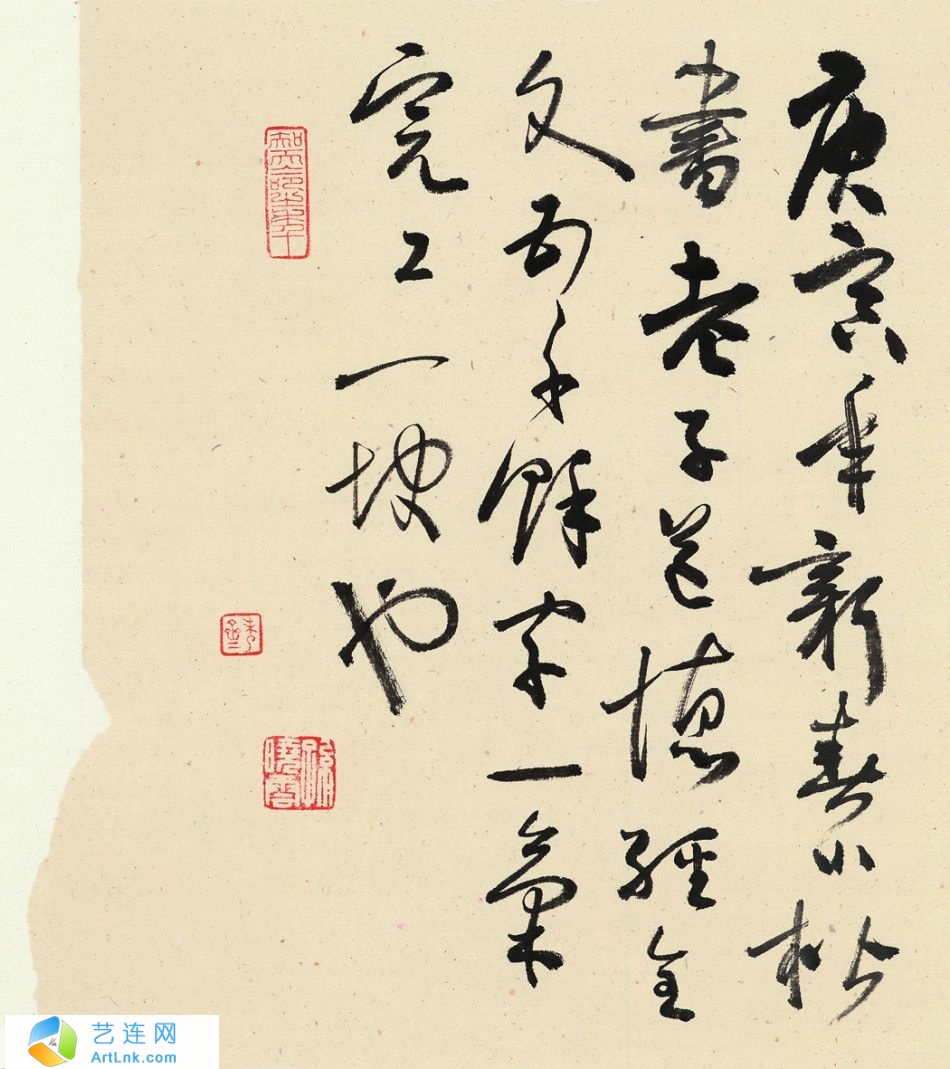 庚寅年新春小楷
書老子道德經全
文五千餘字一氣
完工一快也
艺连网
ArtLnk.com